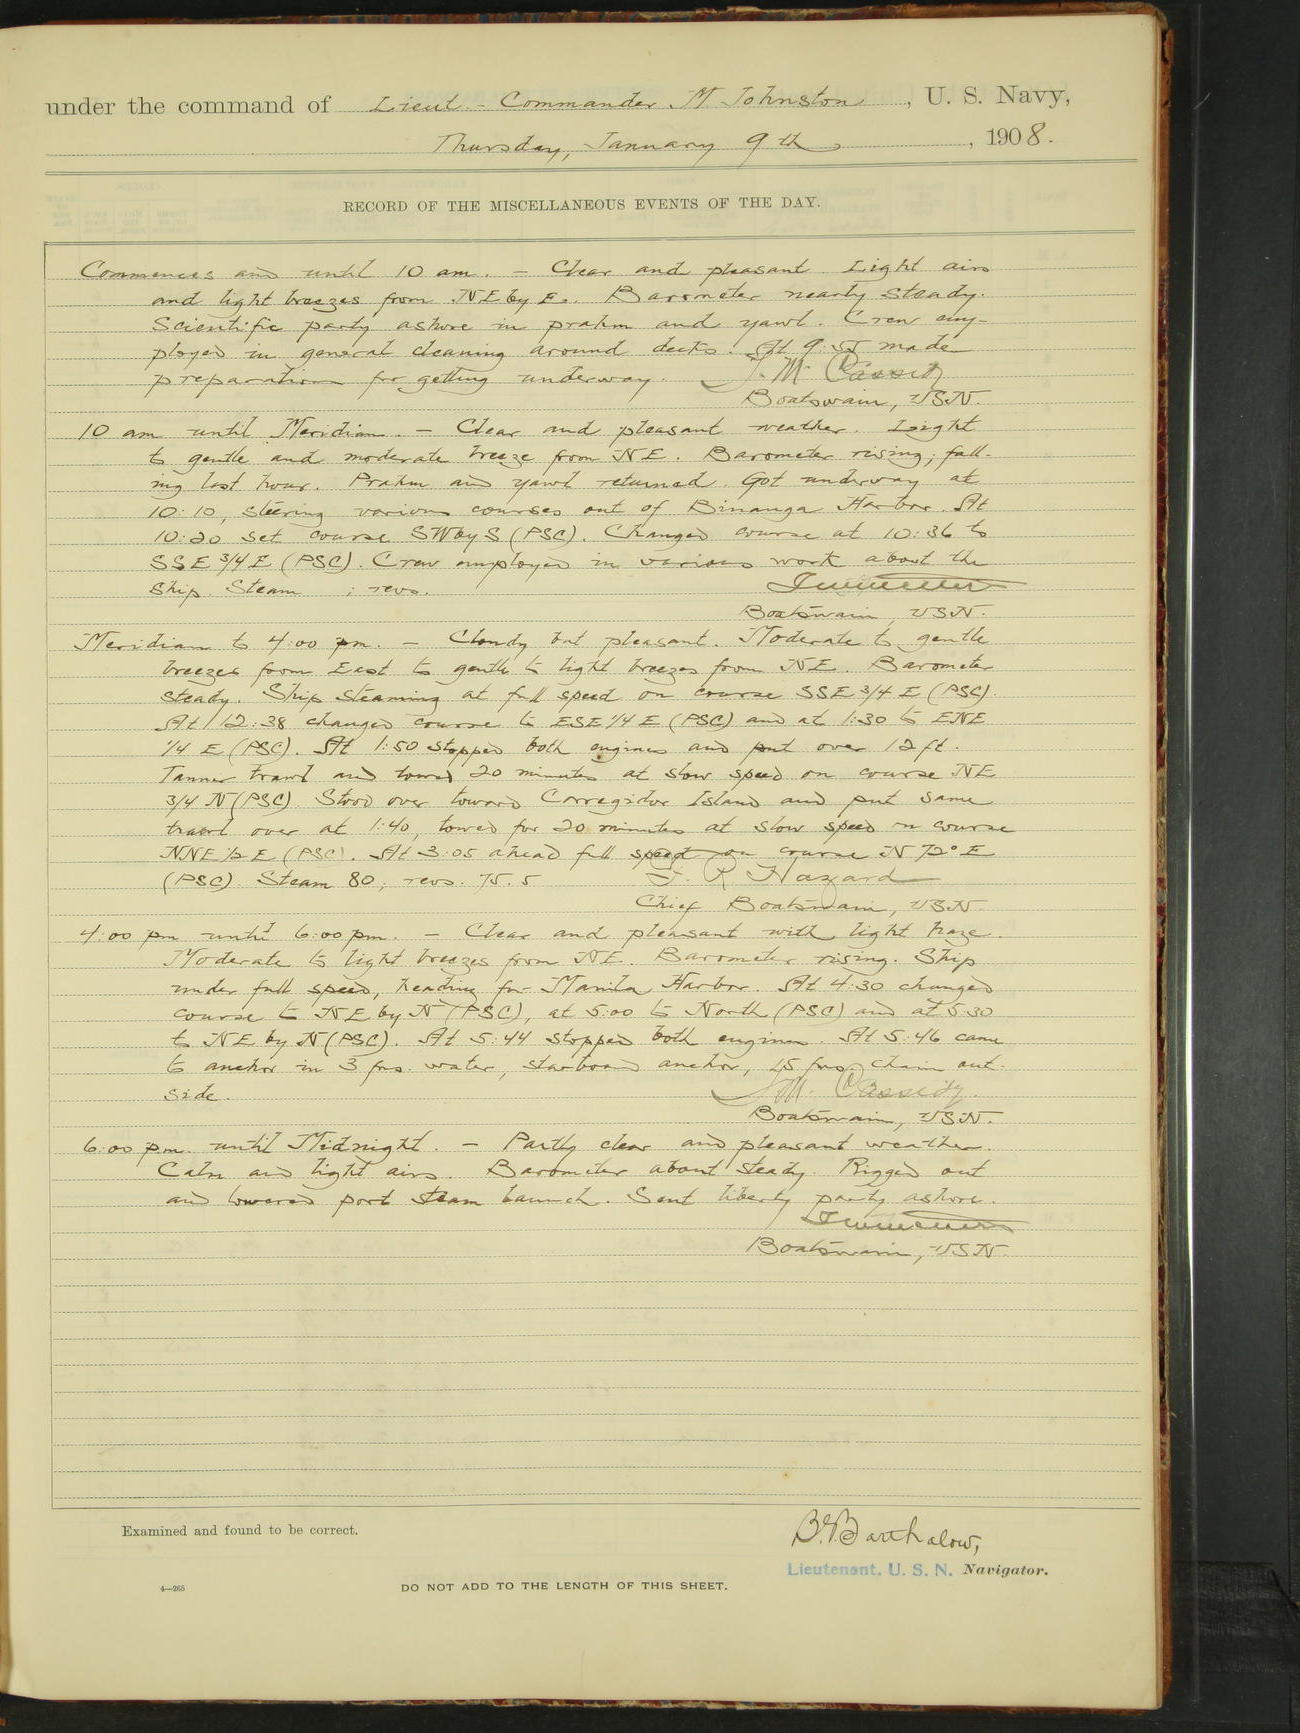 under the command of Lieut-Commander M Johnston, U. S. Navy,
Thursday, January 9th, 1908.
RECORD OF THE MISCELLANEOUS EVENTS OF THE DAY.
Commences and until 10 am. - Clear and pleasant Light airs
and light breezes from NE by E. Barometer nearly steady.
Scientific party ashore in prahm and yawl. Crew em-
ployed in general cleaning around decks. At 9:55 made
preparations for getting underway. J. M. Cassidy
Boatswain, USN.
10 am until Meridian. - Clear and pleasant weather. Light
to gentle and moderate breeze from NE. Barometer rising; fall-
ing last hour. Prahm and yawl returned. Got underway at
10:10, steering various courses out of Binanga Harbor. At
10:20 set course SW by S (PSC). Changed course at 10:36 to
SSE 3/4 E (PSC). Crew employed in various work about the
ship. Steam ; revs.
Boatswain, USN.
Meridian to 4:00 pm. - Cloudy but pleasant. Moderate to gentle
breezes from East to gentle to light breezes from NE. Barometer
steady. Ship steaming at full speed on course SSE 3/4 E (PSC).
At 12:38 changed course to ESE 1/4 E (PSC) and at 1:30 to ENE
1/4 E (PSC). At 1:50 stopped both engines and put over 12 ft.
Tanner trawl and towed 20 minutes at slow speed on course NE
3/4 N (PSC) Stood over toward Corregidor Island and put same
trawl over at 1:40, towed for 20 minutes at slow speed on course
NNE 1/2 E (PSC). At 3:05 ahead full speed on course N 72° E
(PSC) Steam 80; revs. 75.5 J. R. Hazard
Chief Boatswain, USN.
4:00 pm until 6:00 pm. - Clear and pleasant with light haze.
Moderate to light breezes from NE. Barometer rising. Ship
under full speed, heading for Manila Harbor. At 4:30 changed
course to NE by N (PSC), at 5:00 to North (PSC) and at 5:30
to NE by N (PSC). At 5:44 stopped both engines. At 5:46 came
to anchor in 3 fms. water, starboard anchor, 15 fms. chain out-
side. J M. Cassidy.
Boatswain, USN.
6:00 p.m. until Midnight. - Partly clear and pleasant weather.
Calm and light airs. Barometer about steady. Rigged out
and lowered port steam launch. Sent liberty party ashore.
Boatswain, USN.
Examined and found to be correct.
B.B. Barthalow,
Lieutenant, U. S. N. Navigator.
4—265
DO NOT ADD TO THE LENGTH OF THIS SHEET.